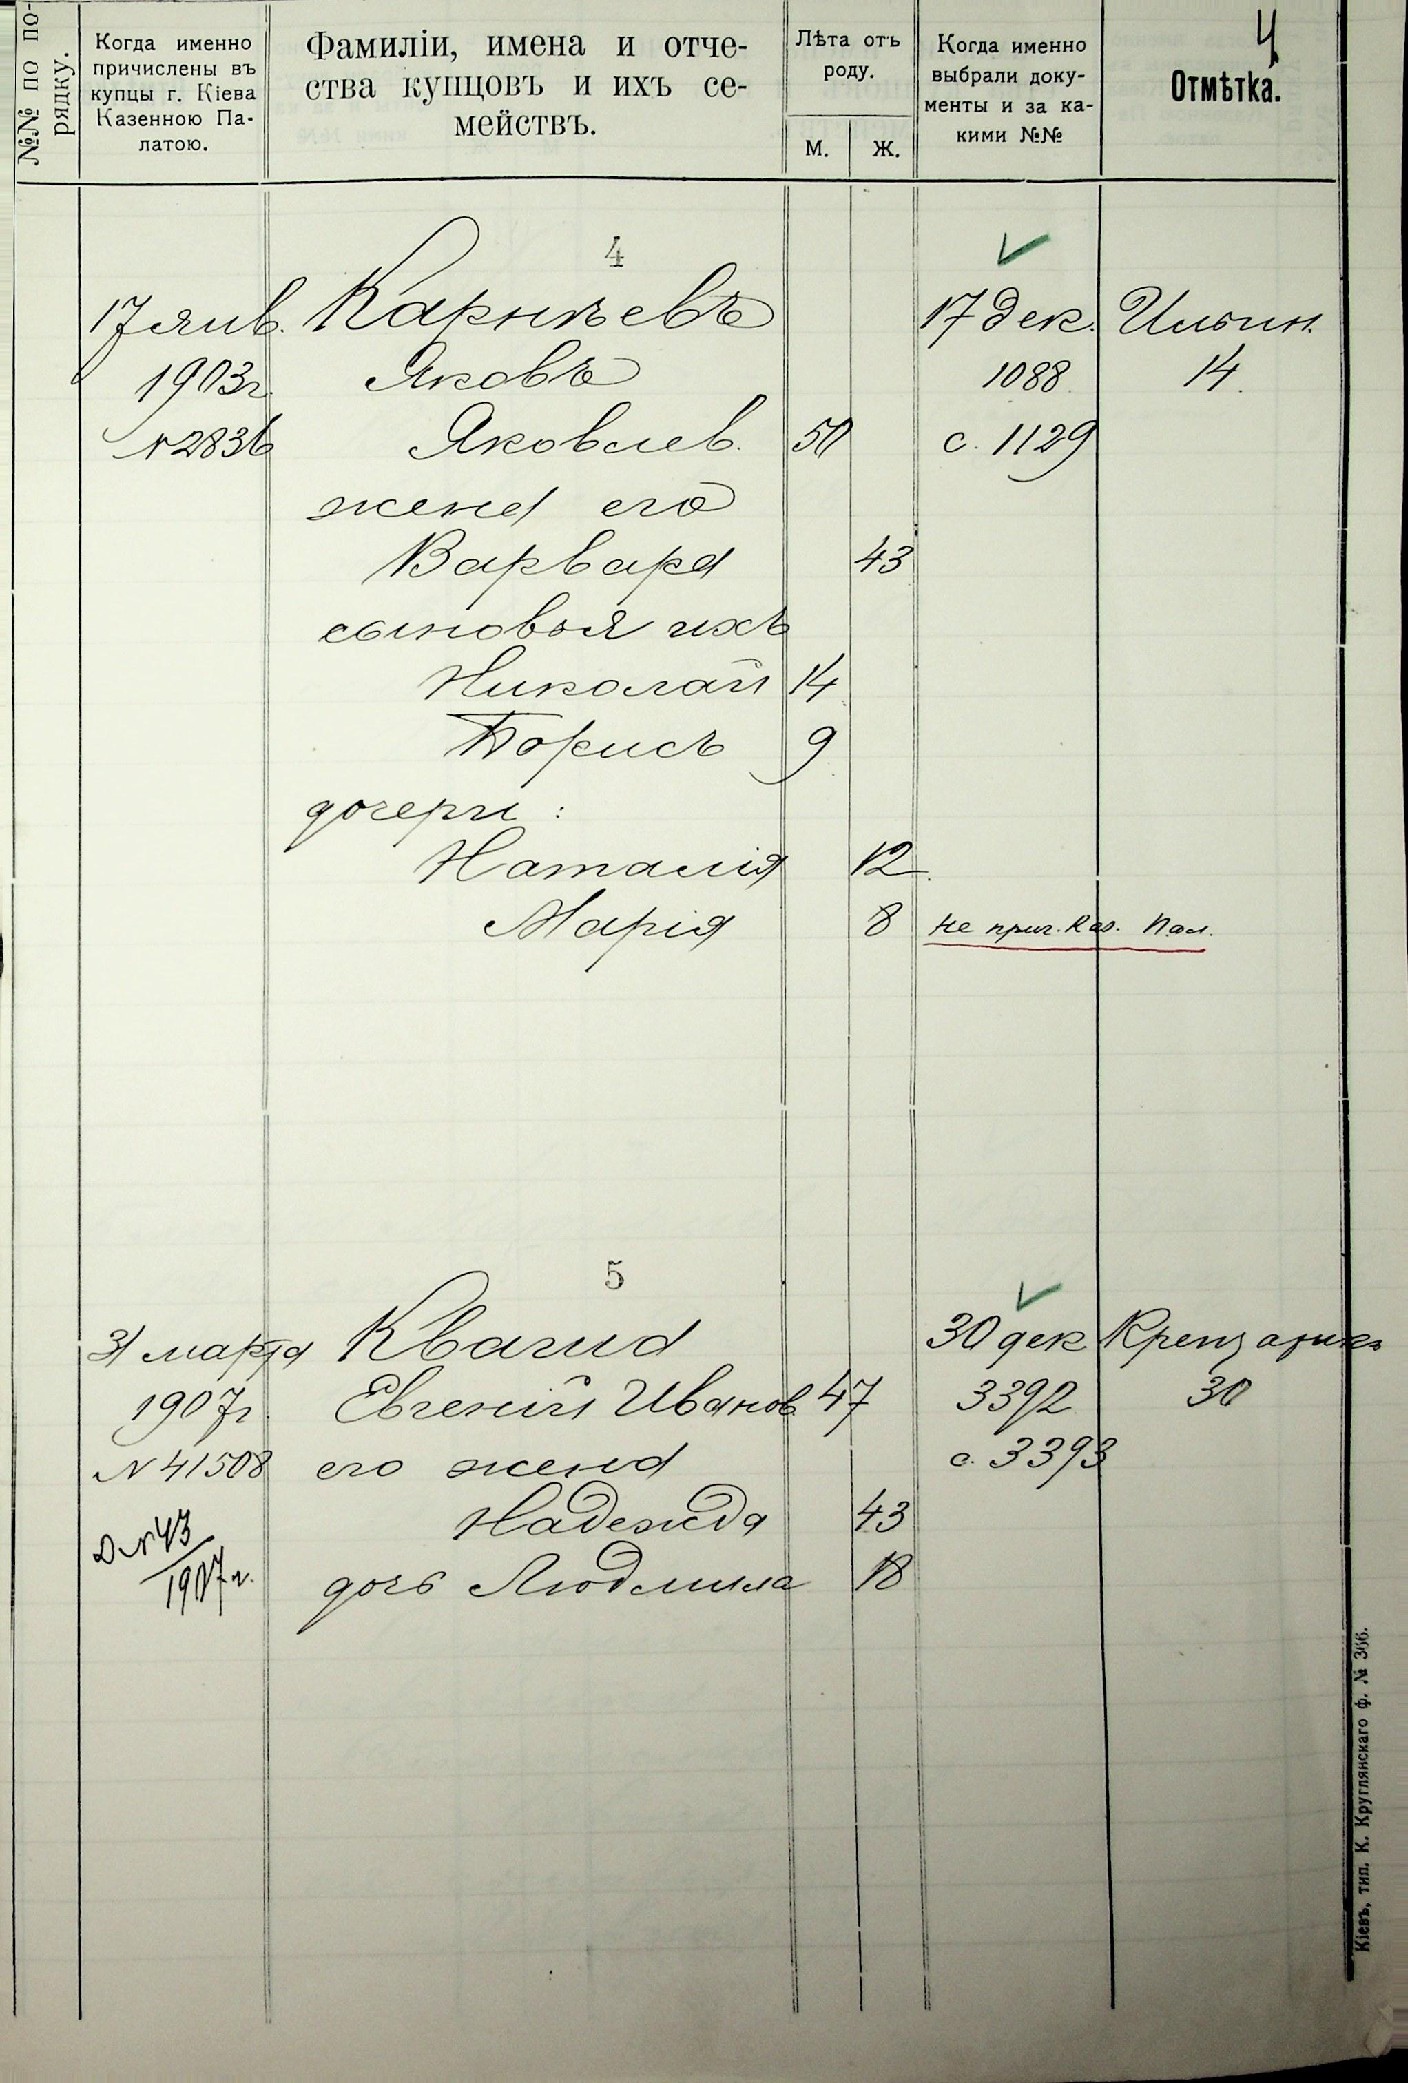 №№ по по-
рядку.
Когда именно
причислены въ
купцы г. Кіева
Казенною Па-
латою.
Фамиліи, имена и отче-
ства купцовъ и ихъ се-
мействъ.
Лѣта отъ
роду.
М. Ж.
Когда именно
выбрали доку-
менты и за ка-
кими №№
4
Отмѣтка.
4
17 янв. Карнѣевъ 17 дек. Ильин.
1903 г. Яковъ 1088 14
№ 2836 Яковлев. 50 с. 1129
жена его
Варвара 43
сыновья ихъ
Николай 14
Борисъ 9
дочери:
Наталія 12
Марія 8 не прич. Каз. Пал.
5
31 марта Квачила 30 дек Крещатикъ
1907 г. Евгеній Иванов. 47 3392 30
№ 41508 его жена с. 3393
Надежда 43
Д. № 43
1907 г. дочь Людмила 18
Кіевъ, тип. К. Круглянскаго ф. № 366.